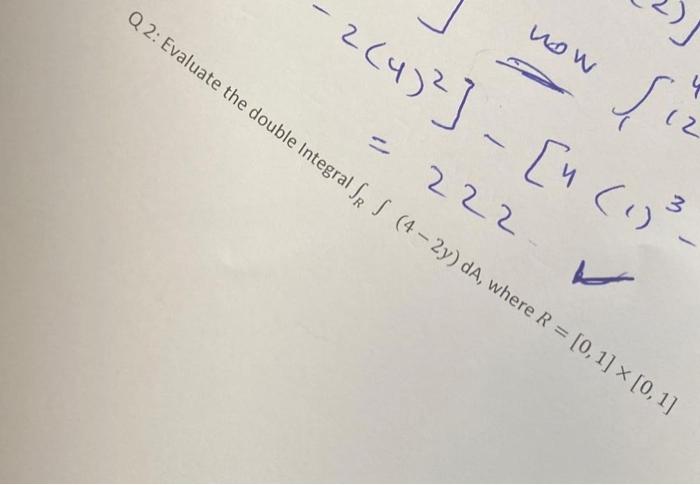 2)]
]
now ∫₁⁴ (12
- 2(4)²] - [4(1)³ -
= 222
Q 2: Evaluate the double Integral ∫_R ∫ (4 − 2y) dA, where R = [0, 1] × [0, 1]